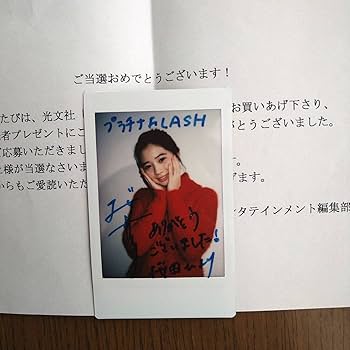 ご当選おめでとうございます！
たびは、光文社
お買いあげ下さり、
者プレゼントにご
がとうございました。
応募いただきまし
す。
様が当選なさいま
げます。
からもご愛読いただ
ンタテインメント編集部
プラチナFLASH
ありがとう
ございました!